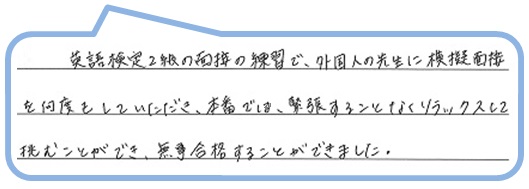 英語検定2級の面接の練習で、外国人の先生に模擬面接
を何度もしていただき、本番では、緊張することなくリラックスして
挑むことができ、無事合格することができました。